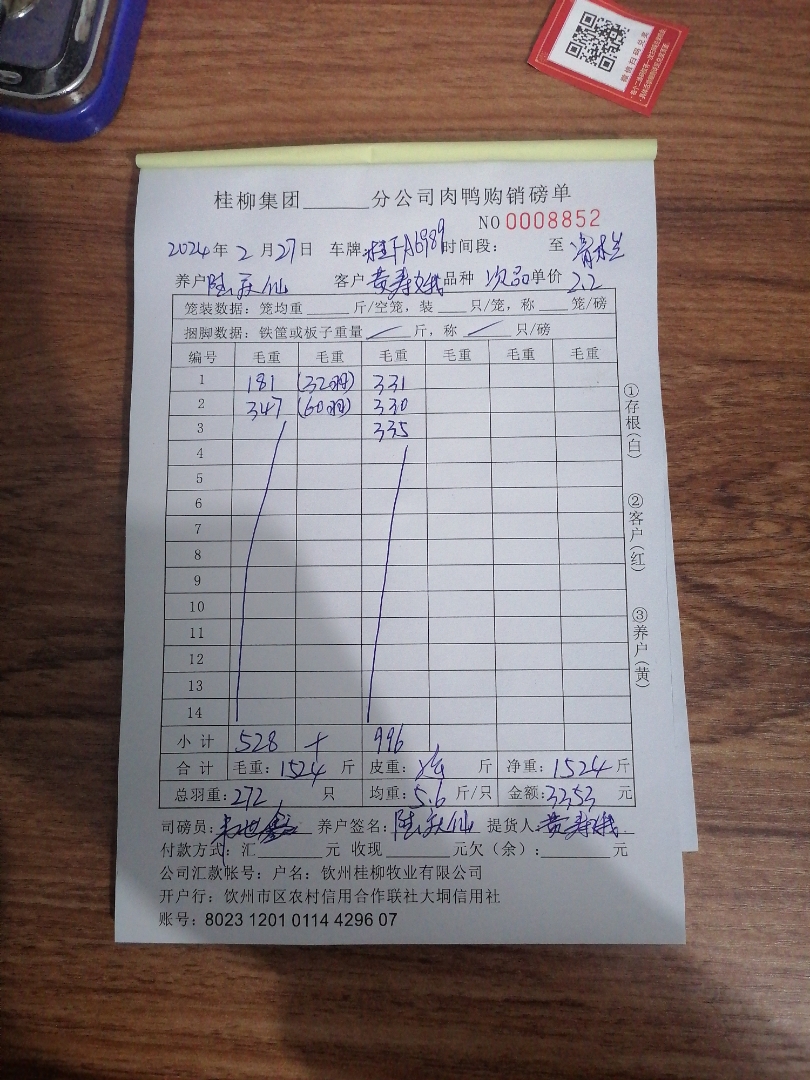 桂柳集团______分公司肉鸭购销磅单
NO 0008852
2024年 2 月 27日 车牌 A6989 时间段： 至
养户 陆 仙 客户 黄寿娥 品种 次品 单价 2.2
笼装数据：笼均重______斤/空笼，装____只/笼，称____笼/磅
捆脚数据：铁筐或板子重量______斤，称______只/磅
编号 毛重 毛重 毛重 毛重 毛重 毛重
1 181 (32羽) 331
2 347 (60羽) 330
3 335
4
5
6
7
8
9
10
11
12
13
14
小计 528 + 996
合计 毛重：1524 斤 皮重： 斤 净重：1524 斤
总羽重：272 只 均重：5.6 斤/只 金额：3353 元
司磅员： 养户签名：陆 仙 提货人：黄寿娥
付款方式：汇______元 收现______元欠（余）：______元
公司汇款帐号：户名：钦州桂柳牧业有限公司
开户行：钦州市区农村信用合作联社大垌信用社
账号：8023 1201 0114 4296 07
①存根（白）
②客户（红）
③养户（黄）